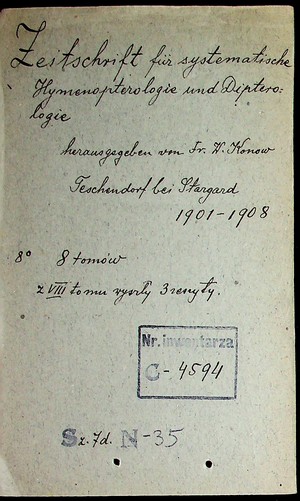 Zeitschrift für systematische
Hymenopterologie und Diptero-
logie
herausgegeben von Fr. W. Konow
Teschendorf bei Stargard
1901-1908
8° 8 tomów
z VIII tomu wyszły 3 zeszyty.
Nr. inwentarza
C-4594
Sz. 7d. N-35